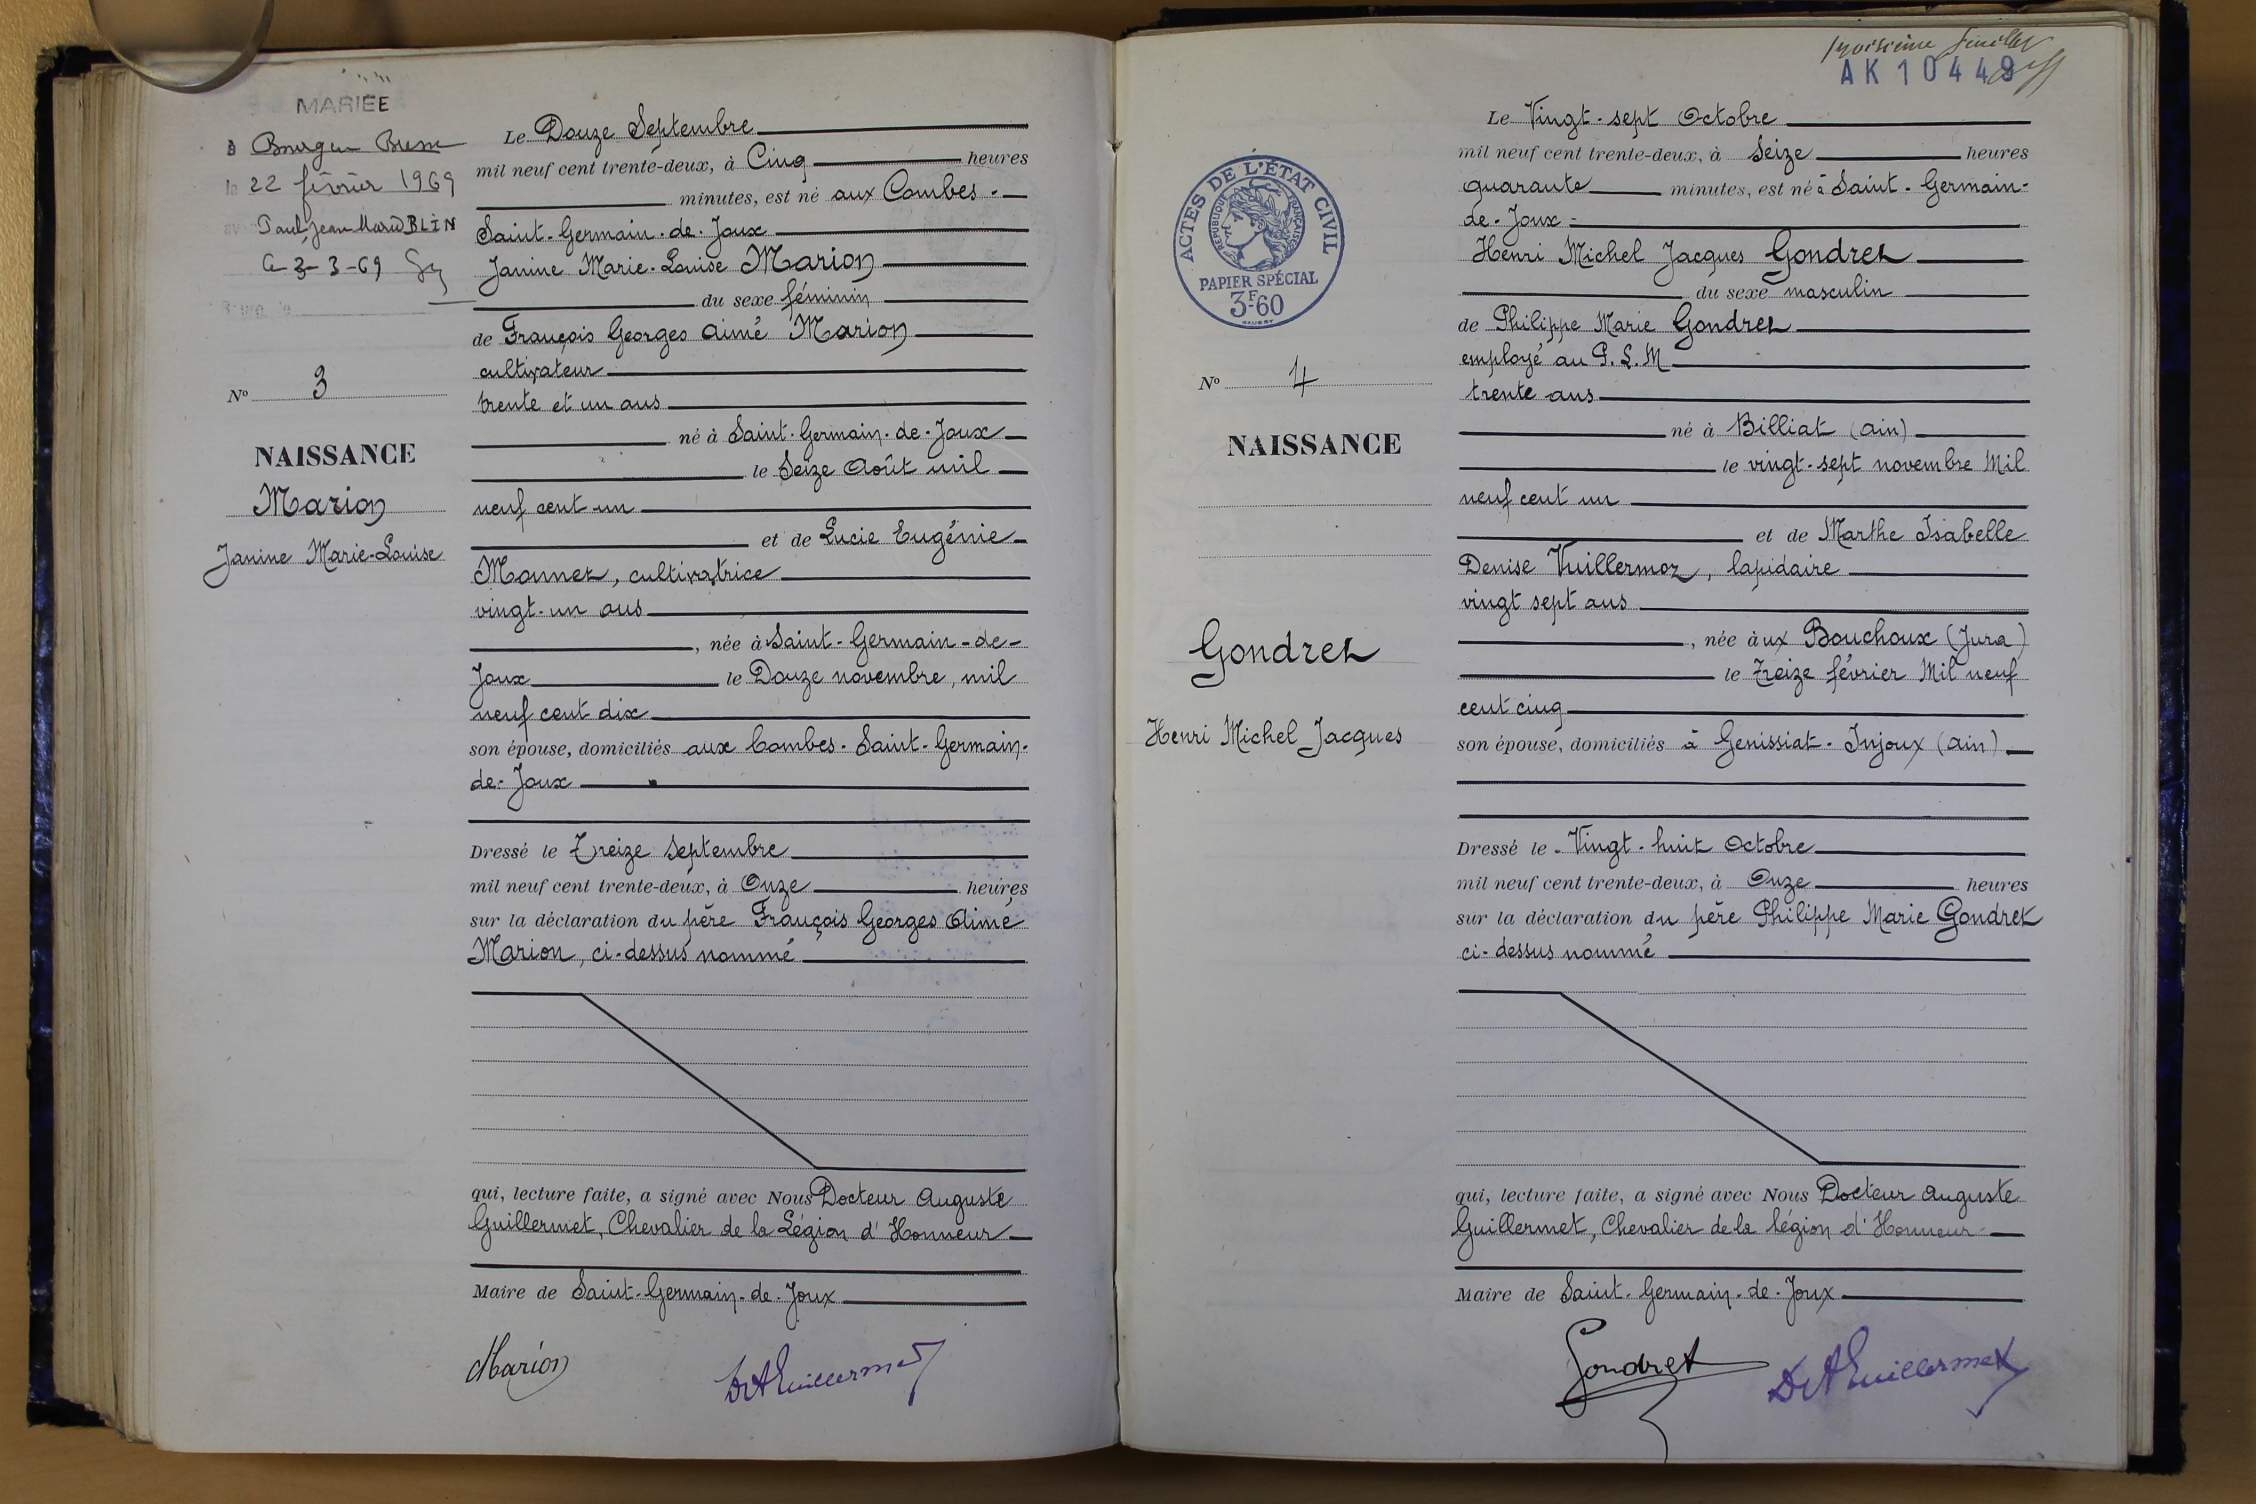 MARIÉE
à Bourg en Bresse
le 22 février 1969
Paul Jean Marie BLIN
3-3-69
N° 3
NAISSANCE
Marion
Janine Marie-Louise
Le Douze Septembre
mil neuf cent trente-deux, à Cinq heures
minutes, est né aux Combes.
Saint-Germain-de-Joux
Janine Marie-Louise Marion
du sexe féminin
de François Georges Aimé Marion
cultivateur
trente et un ans
né à Saint-Germain-de-Joux
le Seize Août mil
neuf cent un
et de Lucie Eugénie
Monnet, cultivatrice
vingt-un ans
, née à Saint-Germain-de-
Joux le Douze novembre, mil
neuf cent dix
son épouse, domiciliés aux Combes. Saint-Germain-
de-Joux
Dressé le Treize Septembre
mil neuf cent trente-deux, à Onze heures
sur la déclaration du père François Georges Aimé
Marion, ci-dessus nommé
qui, lecture faite, a signé avec Nous Docteur Auguste
Guillermet, Chevalier de la Légion d'Honneur
Maire de Saint-Germain-de-Joux
Marion
Dr A Guillermet
troisième feuillet
AK 10449
ACTES DE L'ÉTAT CIVIL
RÉPUBLIQUE FRANÇAISE
PAPIER SPÉCIAL
3F.60
N° 4
NAISSANCE
Gondret
Henri Michel Jacques
Le Vingt-sept Octobre
mil neuf cent trente-deux, à Seize heures
quarante minutes, est né à Saint-Germain-
de-Joux-
Henri Michel Jacques Gondret
du sexe masculin
de Philippe Marie Gondret
employé au P.L.M
trente ans
né à Billiat (Ain)
le vingt-sept novembre Mil
neuf cent un
et de Marthe Isabelle
Denise Vuillermoz, lapidaire
vingt sept ans
, née àux Bouchoux (Jura)
le Treize février Mil neuf
cent cinq
son épouse, domiciliés à Genissiat-Injoux (Ain)
Dressé le Vingt-huit Octobre
mil neuf cent trente-deux, à Onze heures
sur la déclaration du père Philippe Marie Gondret
ci-dessus nommé
qui, lecture faite, a signé avec Nous Docteur Auguste
Guillermet, Chevalier de la légion d'Honneur
Maire de Saint-Germain-de-Joux
Gondret
Dr A Guillermet